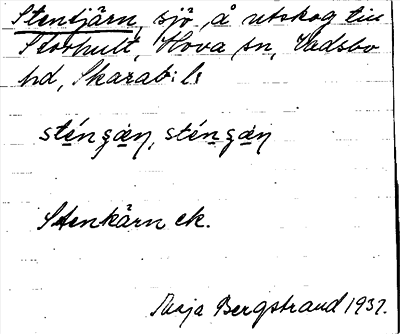 Stentjärn, sjö å utskog till
Storhult, Hova sn, Vadsbo
hd, Skarab: l:
sténʂæṇ, sténʂæṇ
Stenkärn ek.
Maja Bergstrand 1937.